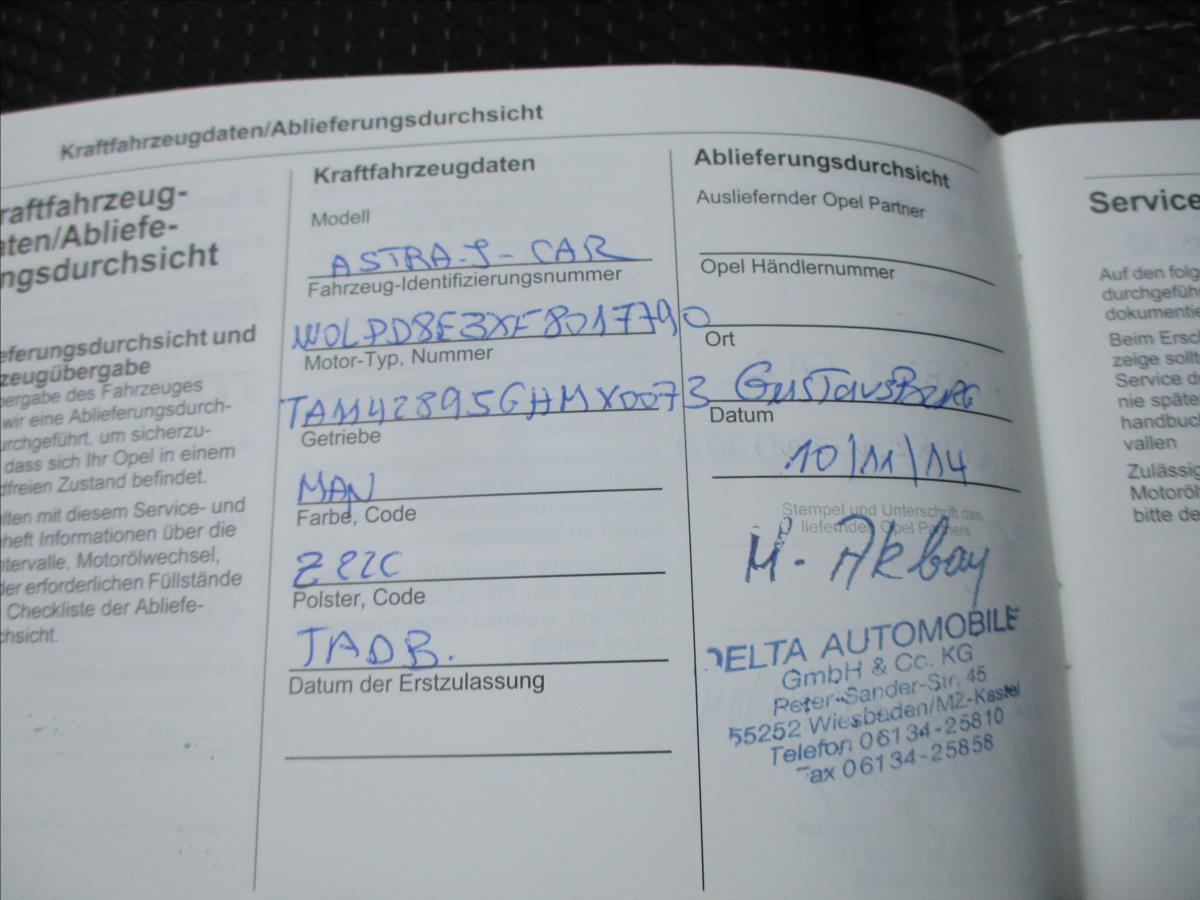 Kraftfahrzeugdaten/Ablieferungsdurchsicht
raftfahrzeug-
aten/Abliefe-
ngsdurchsicht
eferungsdurchsicht und
zeugübergabe
bergabe des Fahrzeuges
wir eine Ablieferungsdurch-
urchgeführt, um sicherzu-
dass sich Ihr Opel in einem
dfreien Zustand befindet.
lten mit diesem Service- und
heft Informationen über die
ntervalle, Motorölwechsel,
der erforderlichen Füllstände
Checkliste der Abliefe-
chsicht.
Kraftfahrzeugdaten
Modell
ASTRA-J-CAR
Fahrzeug-Identifizierungsnummer
W0LPD8E3XF8017790
Motor-Typ, Nummer
TAM42895GHMX0073
Getriebe
MAN
Farbe, Code
Z22C
Polster, Code
TADB.
Datum der Erstzulassung
Ablieferungsdurchsicht
Ausliefernder Opel Partner
Opel Händlernummer
Ort
Gustavsburg
Datum
10/11/14
Stempel und Unterschrift des
liefernden Opel Partners
M. Akbay
DELTA AUTOMOBILE
GmbH & Co. KG
Peter-Sander-Str. 45
55252 Wiesbaden/MZ-Kastel
Telefon 06134-25810
Fax 06134-25858
Service
Auf den folg
durchgefüh
dokumentie
Beim Ersch
zeige sollt
Service du
nie späte
handbuc
vallen
Zulässig
Motoröl
bitte de